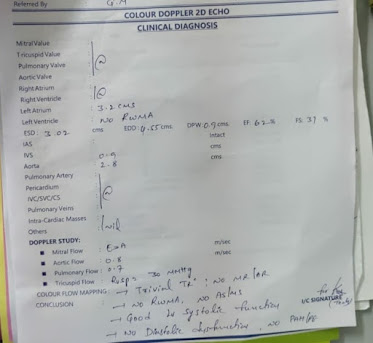 Referred By G.M
COLOUR DOPPLER 2D ECHO
CLINICAL DIAGNOSIS
Mitral Valve
Tricuspid Valve
Pulmonary Valve
Aortic Valve
Right Atrium
Right Ventricle
Left Atrium : 3.2 cms
Left Ventricle : NO RWMA
ESD : 3.02 cms EDD : 4.55 cms. DPW 0.9 cms. EF: 62 % FS: 31 %
IAS Intact
IVS : 0.9 cms
Aorta : 2.8 cms
Pulmonary Artery
Pericardium
IVC/SVC/CS
Pulmonary Veins
Intra-Cardiac Masses : Nil
Others
DOPPLER STUDY:
■ Mitral Flow : E>A m/sec
■ Aortic Flow : 0.8 m/sec
■ Pulmonary Flow : 0.7
■ Tricuspid Flow : RVSP 30 mmHg
COLOUR FLOW MAPPING : → Trivial TR ; NO MR/AR
CONCLUSION → NO RWMA, NO AS/MS
→ Good LV systolic function I/C SIGNATURE
→ NO Diastolic dysfunction, NO PAH/PE